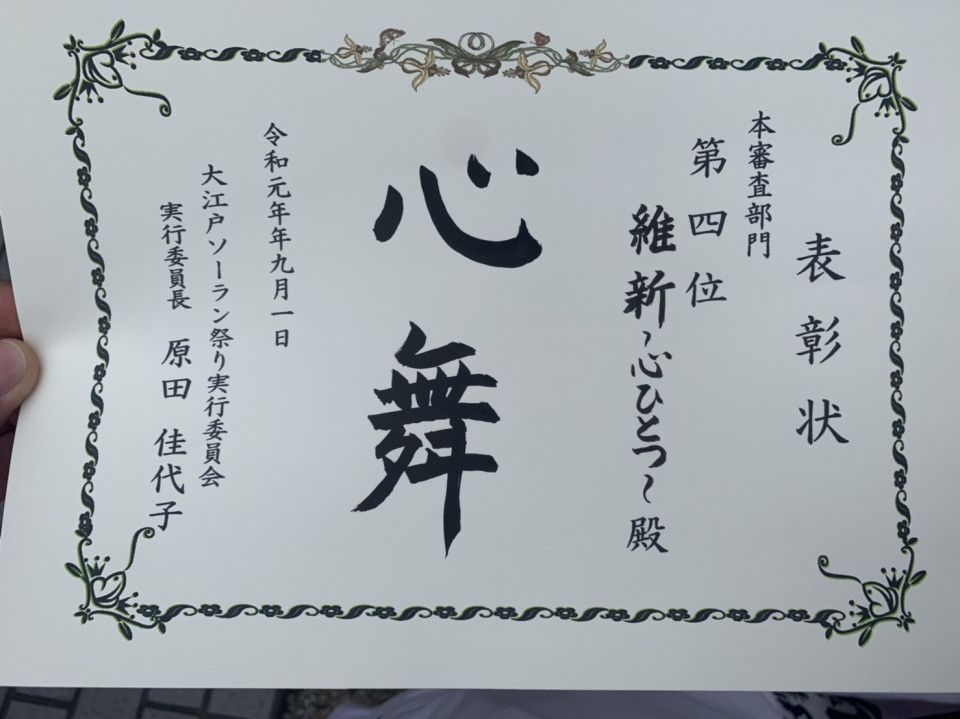 表彰状
本審査部門
第四位
維新~心ひとつ~殿
心舞
令和元年年九月一日
大江戸ソーラン祭り実行委員会
実行委員長 原田 佳代子